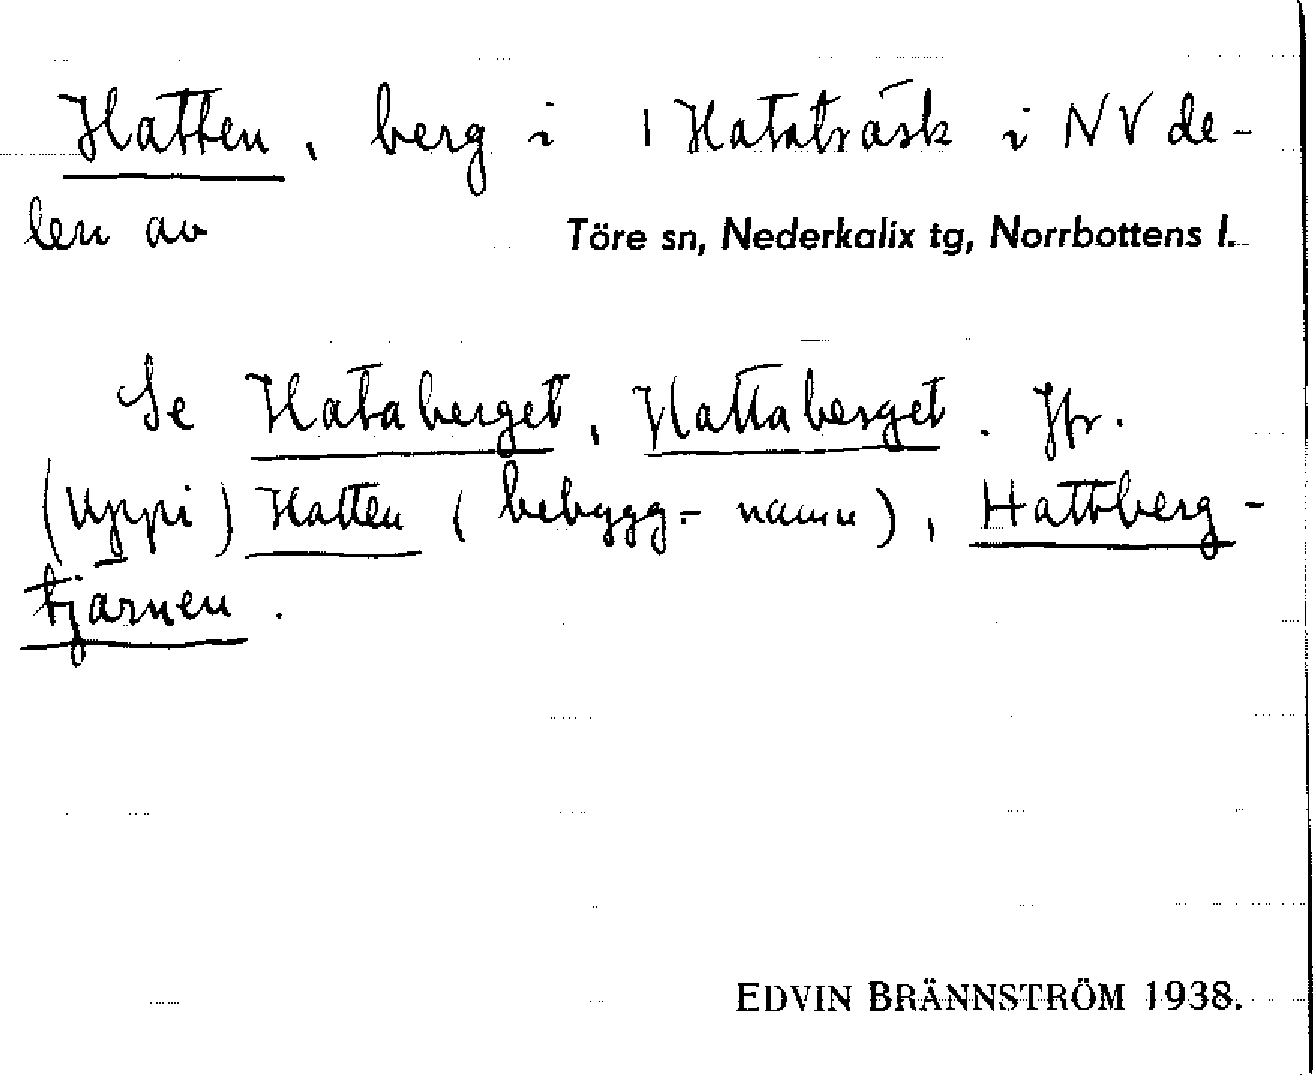 Hatten, berg i 1 Hataträsk i NV de-
len av Töre sn, Nederkalix tg, Norrbottens l.
Se Hataberget, Hattaberget. Jfr.
(Uppi) Hatten (bebygg.-namn), Hattberg-
tjärnen.
EDVIN BRÄNNSTRÖM 1938.